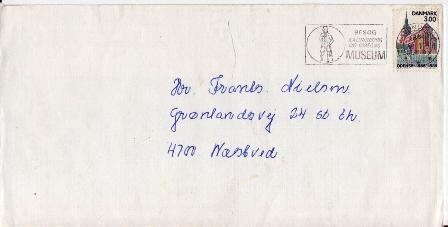 BESØG
KALUNDBORG
OG OMEGNS
MUSEUM
DANMARK
3.00
Hr. Frants Nielsen
Grønlandsvej 24 st th.
4700 Næstved